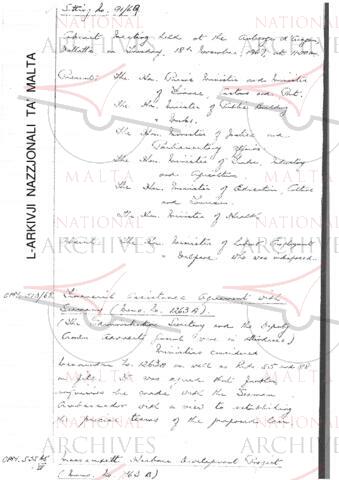 Sitting No. 91/69
Cabinet Meeting held at the Auberge d'Aragon,
Valletta on Tuesday, 18th November, 1969, at 11.00am
Present: The Hon. Prime Minister and Minister
of Finance, Customs and Port.
The Hon. Minister of Public Building
& Works.
The Hon. Minister of Justice and
Parliamentary Affairs.
The Hon. Minister of Trade, Industry
and Agriculture.
The Hon. Minister of Education, Culture
and Tourism.
The Hon. Minister of Health.
The Hon. Minister of Labour, Employment
& Welfare who was indisposed.
Financial Assistance Agreement with
Germany (Memo. No. 1263A).
(The Administrative Secretary and the Deputy
Crown Advocate General were in attendance)
Ministers considered
Memorandum No. 1263A as well as Reds 55 and 88
in file. It was agreed that further
enquiries be made with the German
Ambassador with a view to establishing
the precise terms of the proposed loan.
Marsamxett Harbour Development Project
L-ARKIVJI NAZZJONALI TA' MALTA
NATIONAL
ARCHIVES
MALTA